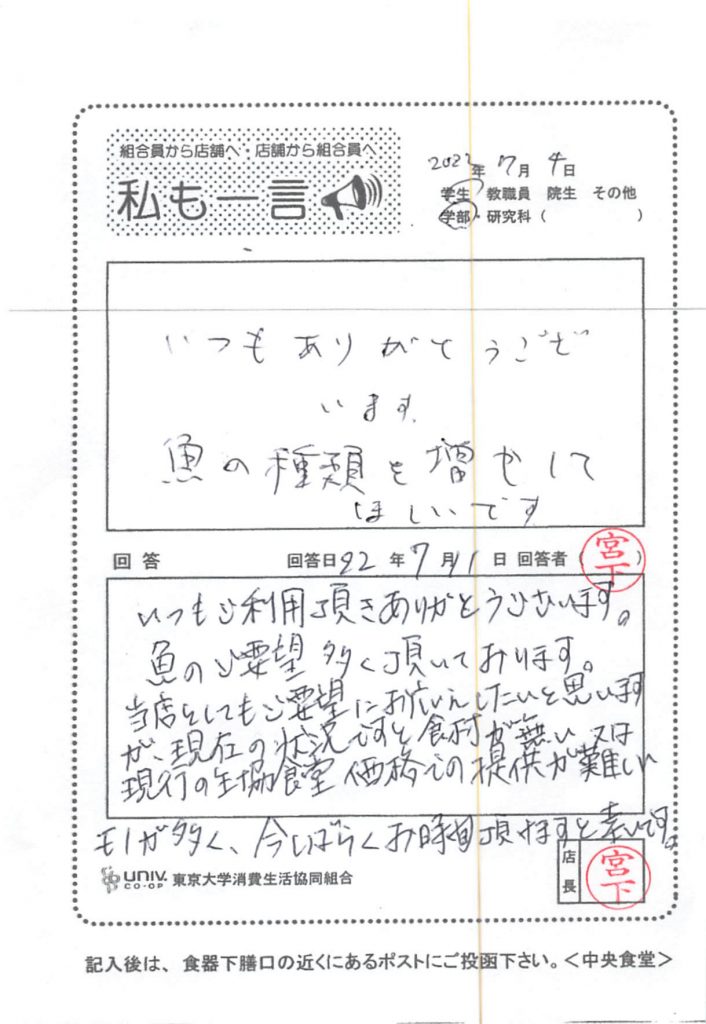 組合員から店舗へ・店舗から組合員へ
私も一言
2022年 7月 4日
学生 教職員 院生 その他
学部・研究科（　　　　　）
いつもありがとうござ
います。
魚の種類を増やして
ほしいです
回答 回答日22年7月11日 回答者（宮下）
いつもご利用頂きありがとうございます。
魚のご要望多く頂いております。
当店としてもご要望にお応えしたいと思います
が、現在の状況ですと食材が無い又は
現行の生協食堂価格での提供が難しい
モノが多く、今しばらくお時間頂けますと幸いです。
店長 宮下
UNIV. CO-OP 東京大学消費生活協同組合
記入後は、食器下膳口の近くにあるポストにご投函下さい。＜中央食堂＞